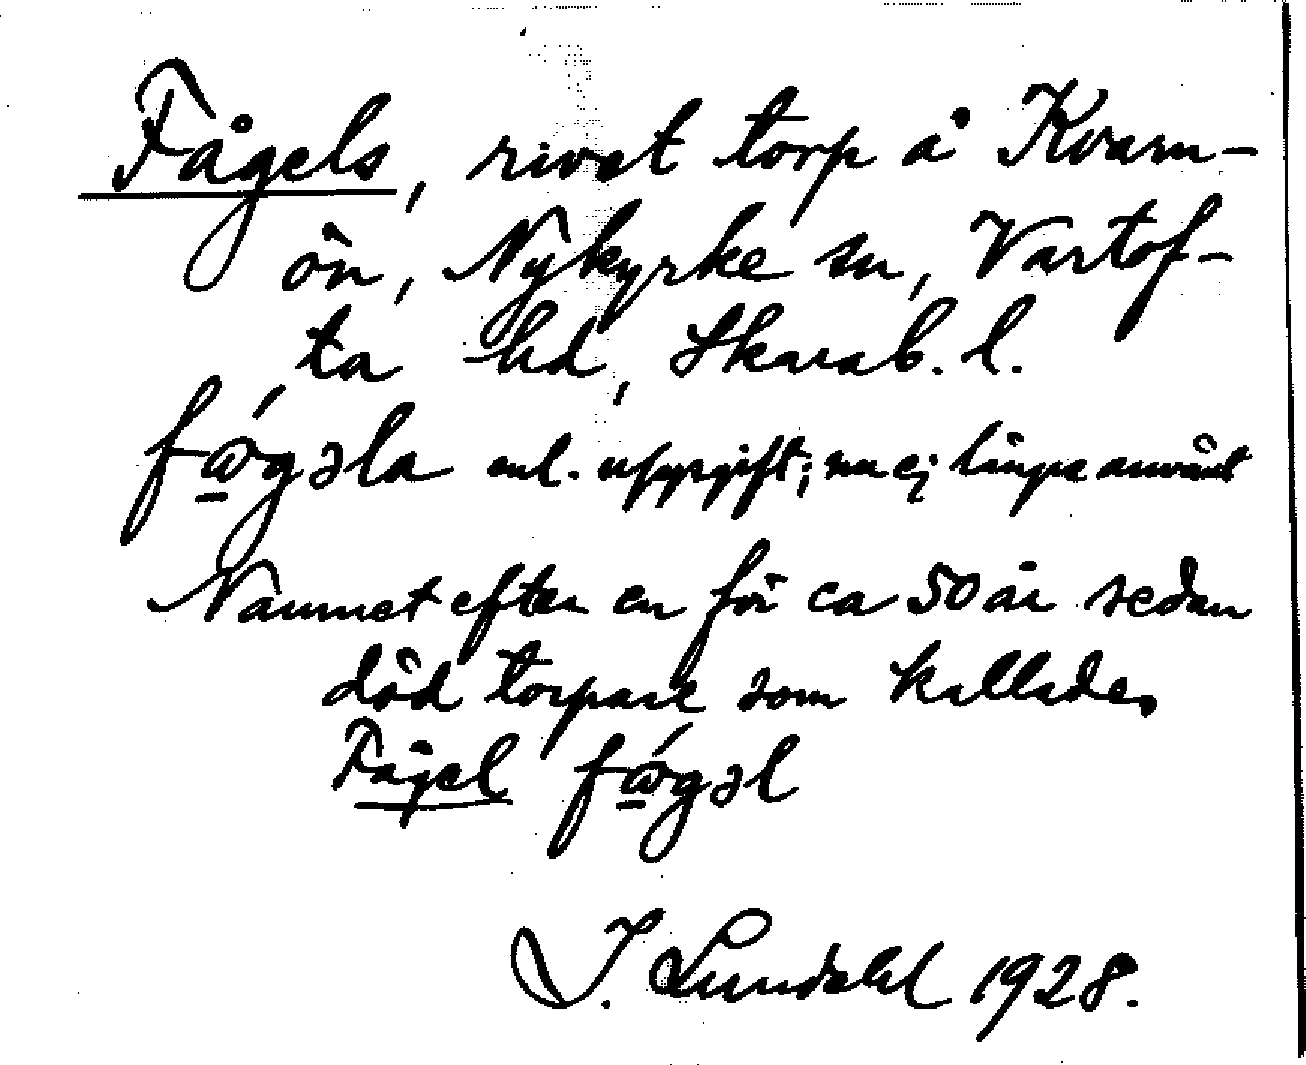 Fågels, rivet torp å Kvarn-
ön, Nykyrke sn, Vartof-
ta hd, Skarab. l.
fǻgəla enl. uppgift; nu ej längre använt
Namnet efter en för ca 50 år sedan
död torpare som kallades
Fågel fǻgəl
I. Lundahl 1928.